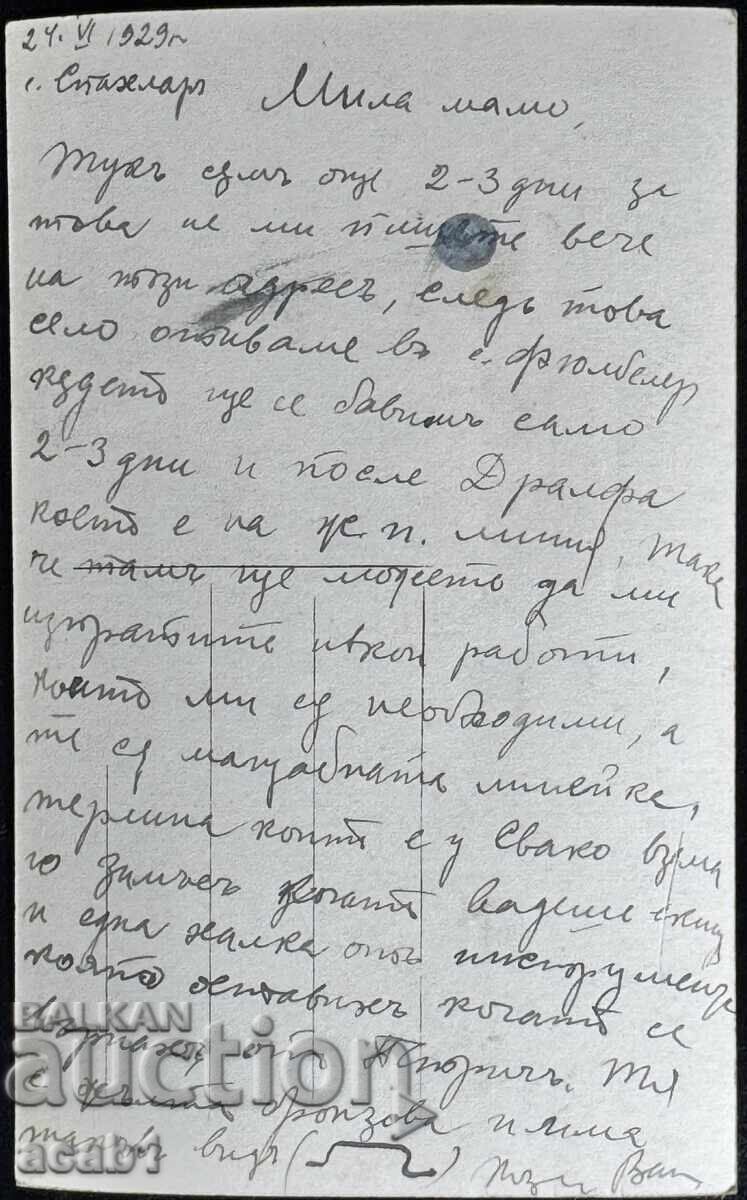 24. VI 1929 г.
с. Стахларъ Мила мамо,
Тукъ съмъ още 2-3 дни за
това не ми пишете вече
на този адресъ, следъ това
село отиваме въ с. Фюлбелер
кѫдето ще се бавимъ само
2-3 дни и после Дралфа
което е на ж.п. линия, така
че тамъ ще можете да ми
изпратите нѣкои работи,
които ми сѫ необходими, а
те сѫ мащабната линейка,
която е у Свако взема
го зимъсъ когато вадеше скици
и една халка отъ инструмента
която оставихъ когато се
върнахъ отъ Тюричъ. Тя
е жълта бронзова и има
такъвъ видъ ( )
BALKAN
auction
acab1